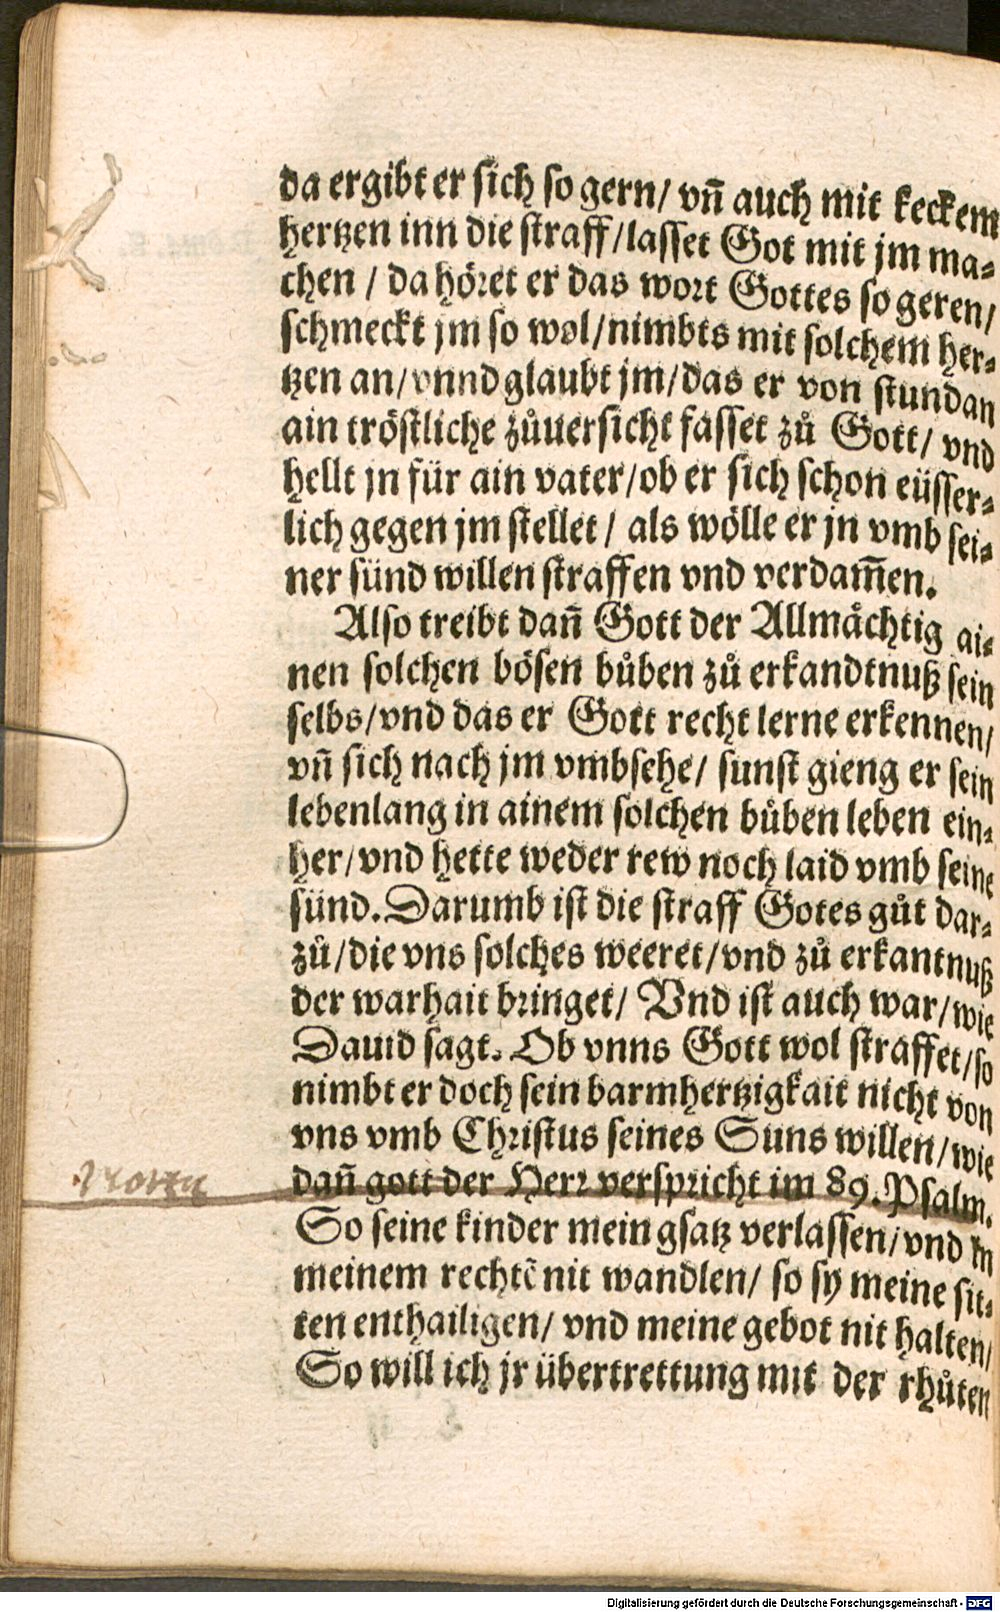 da ergibt er sich so gern/ vn̄ auch mit keckem
hertzen inn die straff/lasset Got mit jm ma-
chen / da höret er das wort Gottes so geren/
schmeckt jm so wol/nimbts mit solchem her-
tzen an/vnnd glaubt jm/das er von stundan
ain tröstliche zůuersicht fasset zů Gott/ vnd
hellt jn für ain vater/ob er sich schon eüsser-
lich gegen jm stellet/ als wölle er jn vmb sei-
ner sünd willen straffen vnd verdam̄en.
Also treibt dan̄ Gott der Allmächtig ai-
nen solchen bösen bůben zů erkandtnuß sein
selbs/vnd das er Gott recht lerne erkennen/
vn̄ sich nach jm vmbsehe/ sunst gieng er sein
lebenlang in ainem solchen bůben leben ein-
her/vnd hette weder rew noch laid vmb seine
sünd. Darumb ist die straff Gotes gůt dar-
zů/die vns solches weeret/vnd zů erkantnuß
der warhait bringet/ Vnd ist auch war/wie
Dauid sagt. Ob vnns Gott wol straffet/so
nimbt er doch sein barmhertzigkait nicht von
vns vmb Christus seines Suns willen/wie
dan̄ gott der Herr verspricht im 89. Psalm.
So seine kinder mein gsatz verlassen/vnd in
meinem rechtē nit wandlen/ so sy meine sit-
ten enthailigen/ vnd meine gebot nit halten/
So will ich jr übertrettung mit der rhůten
Digitalisierung gefördert durch die Deutsche Forschungsgemeinschaft - DFG